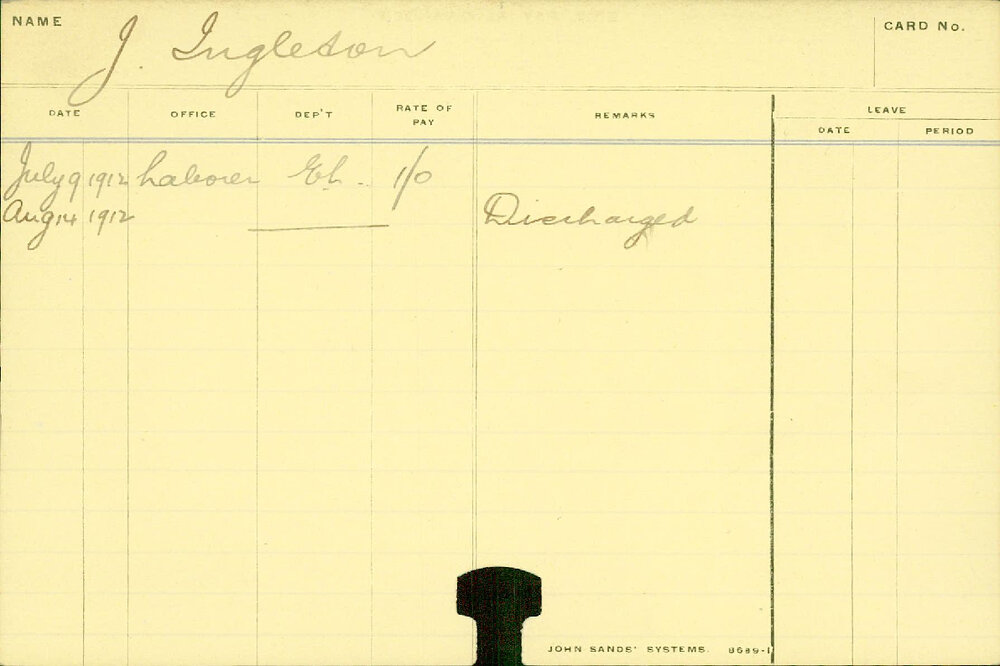 NAME J. Ingleson CARD No.
DATE OFFICE DEP'T RATE OF PAY REMARKS LEAVE
DATE PERIOD
July 9 1912 Laborer 1/0
Aug 14 1912 Discharged
JOHN SANDS' SYSTEMS. 8689-1